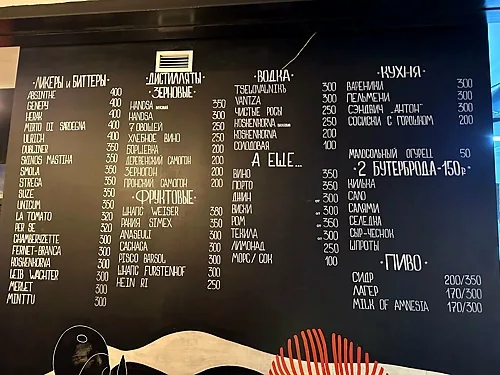 ·ЛИКЕРЫ и БИТТЕРЫ·
ABSINTHE 400
GENEPY 400
HERAK 400
MIRTO DI SARDEGNA 400
ULRICH 400
DUBLINER 350
SKINOS MASTIHA 350
SMOLA 350
STREGA 350
SUZE 350
UNICUM 350
LA TOMATO 320
PER SE 320
CHAMBERYZETTE 300
FERNET-BRANCA 300
KOSHENHORVA 300
LEIB WACHTER 300
MERLET 300
MINTTU 300
·ДИСТИЛЛЯТЫ·
ЗЕРНОВЫЕ·
HANDSA 350
HANDSA 300
7 ОВОЩЕЙ 250
ХЛЕБНОЕ ВИНО 250
БОРЩЕВКА 200
ДЕРЕВЕНСКИЙ САМОГОН 200
ЗЕРНОГОН 200
ПРОНСКИЙ САМОГОН 200
·ФРУКТОВЫЕ·
ШНАПС WEISER 380
РАКИЯ SIMEX 350
ANASEULI 300
CACHACA 300
PISCO BARSOL 300
ШНАПС FURSTENHOF 300
HEIN RI 250
·ВОДКА·
TSELOVALNIKЪ 300
YANTZA 300
ЧИСТЫЕ РОСЫ 250
KOSHENHORVA 200
KOSHENHORVA 200
СОЛОДОВАЯ 100
А ЕЩЕ...
ВИНО 350
ПОРТО 350
ДЖИН от 300
ВИСКИ от 350
РОМ от 350
ТЕКИЛА от 300
ЛИМОНАД 250
МОРС/СОК 100
·КУХНЯ·
ВАРЕНИКИ 300
ПЕЛЬМЕНИ 300
СЭНДВИЧ „АНТОН" 300
СОСИСКИ С ГОРОШКОМ 200
МАЛОСОЛЬНЫЙ ОГУРЕЦ 50
·2 БУТЕРБРОДА-150р
КИЛЬКА
САЛО
САЛЯМИ
СЕЛЕДКА
СЫР-ЧЕСНОК
ШПРОТЫ
·ПИВО·
СИДР 200/350
ЛАГЕР 170/300
MILK OF AMNESIA 170/300